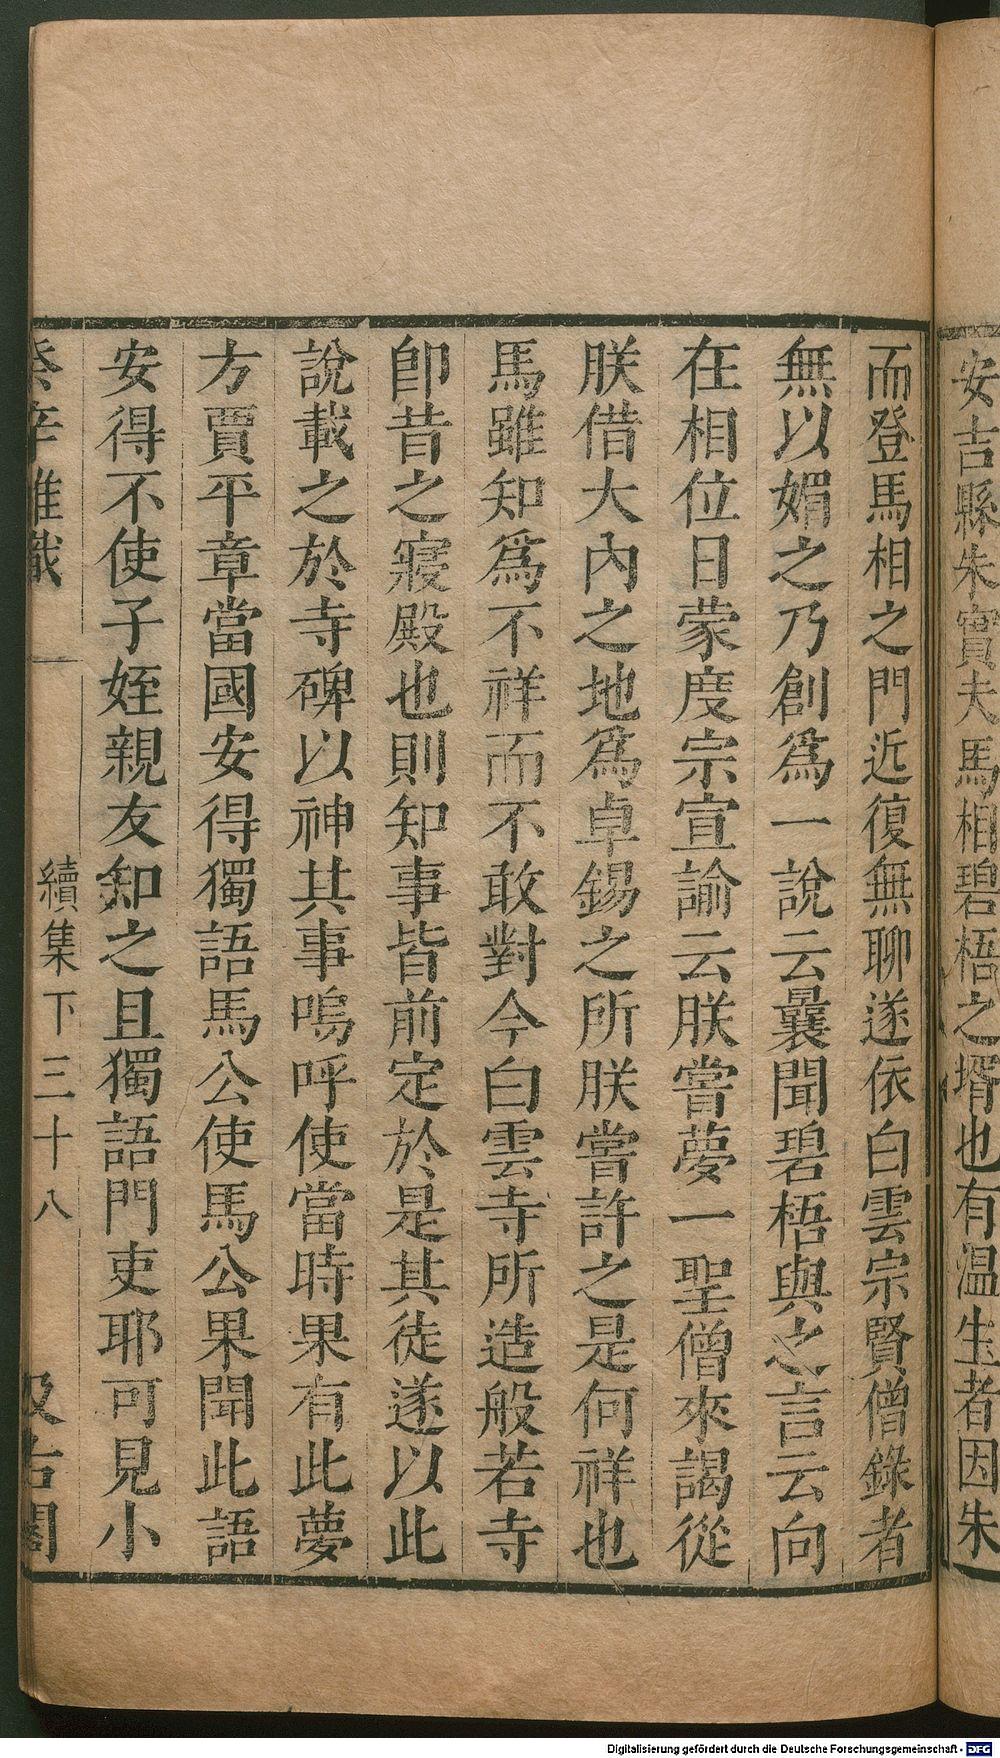 安吉縣朱實夫馬相碧梧之壻也有温生者因朱
而登馬相之門近復無聊遂依白雲宗賢僧錄者
無以媚之乃創爲一說云曩聞碧梧與之言云向
在相位日蒙度宗宣諭云朕嘗夢一聖僧來謁從
朕借大內之地爲卓錫之所朕嘗許之是何祥也
馬雖知爲不祥而不敢對今白雲寺所造般若寺
卽昔之寢殿也則知事皆前定於是其徒遂以此
說載之於寺碑以神其事嗚呼使當時果有此夢
方賈平章當國安得獨語馬公使馬公果聞此語
安得不使子姪親友知之且獨語門吏耶可見小
癸辛雜識 續集下 三十八 汲古閣
Digitalisierung gefördert durch die Deutsche Forschungsgemeinschaft - DFG